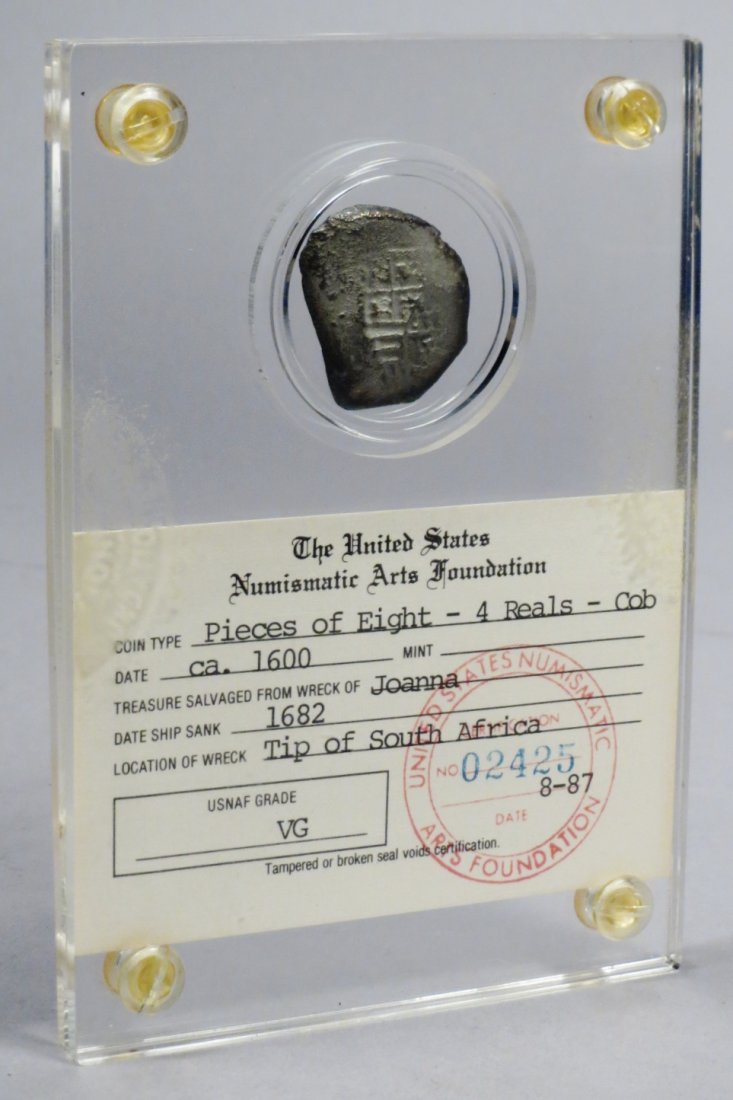 The United States
Numismatic Arts Foundation
COIN TYPE Pieces of Eight - 4 Reals - Cob
DATE ca. 1600 MINT
TREASURE SALVAGED FROM WRECK OF Joanna
DATE SHIP SANK 1682
LOCATION OF WRECK Tip of South Africa
USNAF GRADE
VG
Tampered or broken seal voids certification.
UNITED STATES NUMISMATIC
CERTIFICATION
NO 02425
8-87
DATE
ARTS FOUNDATION